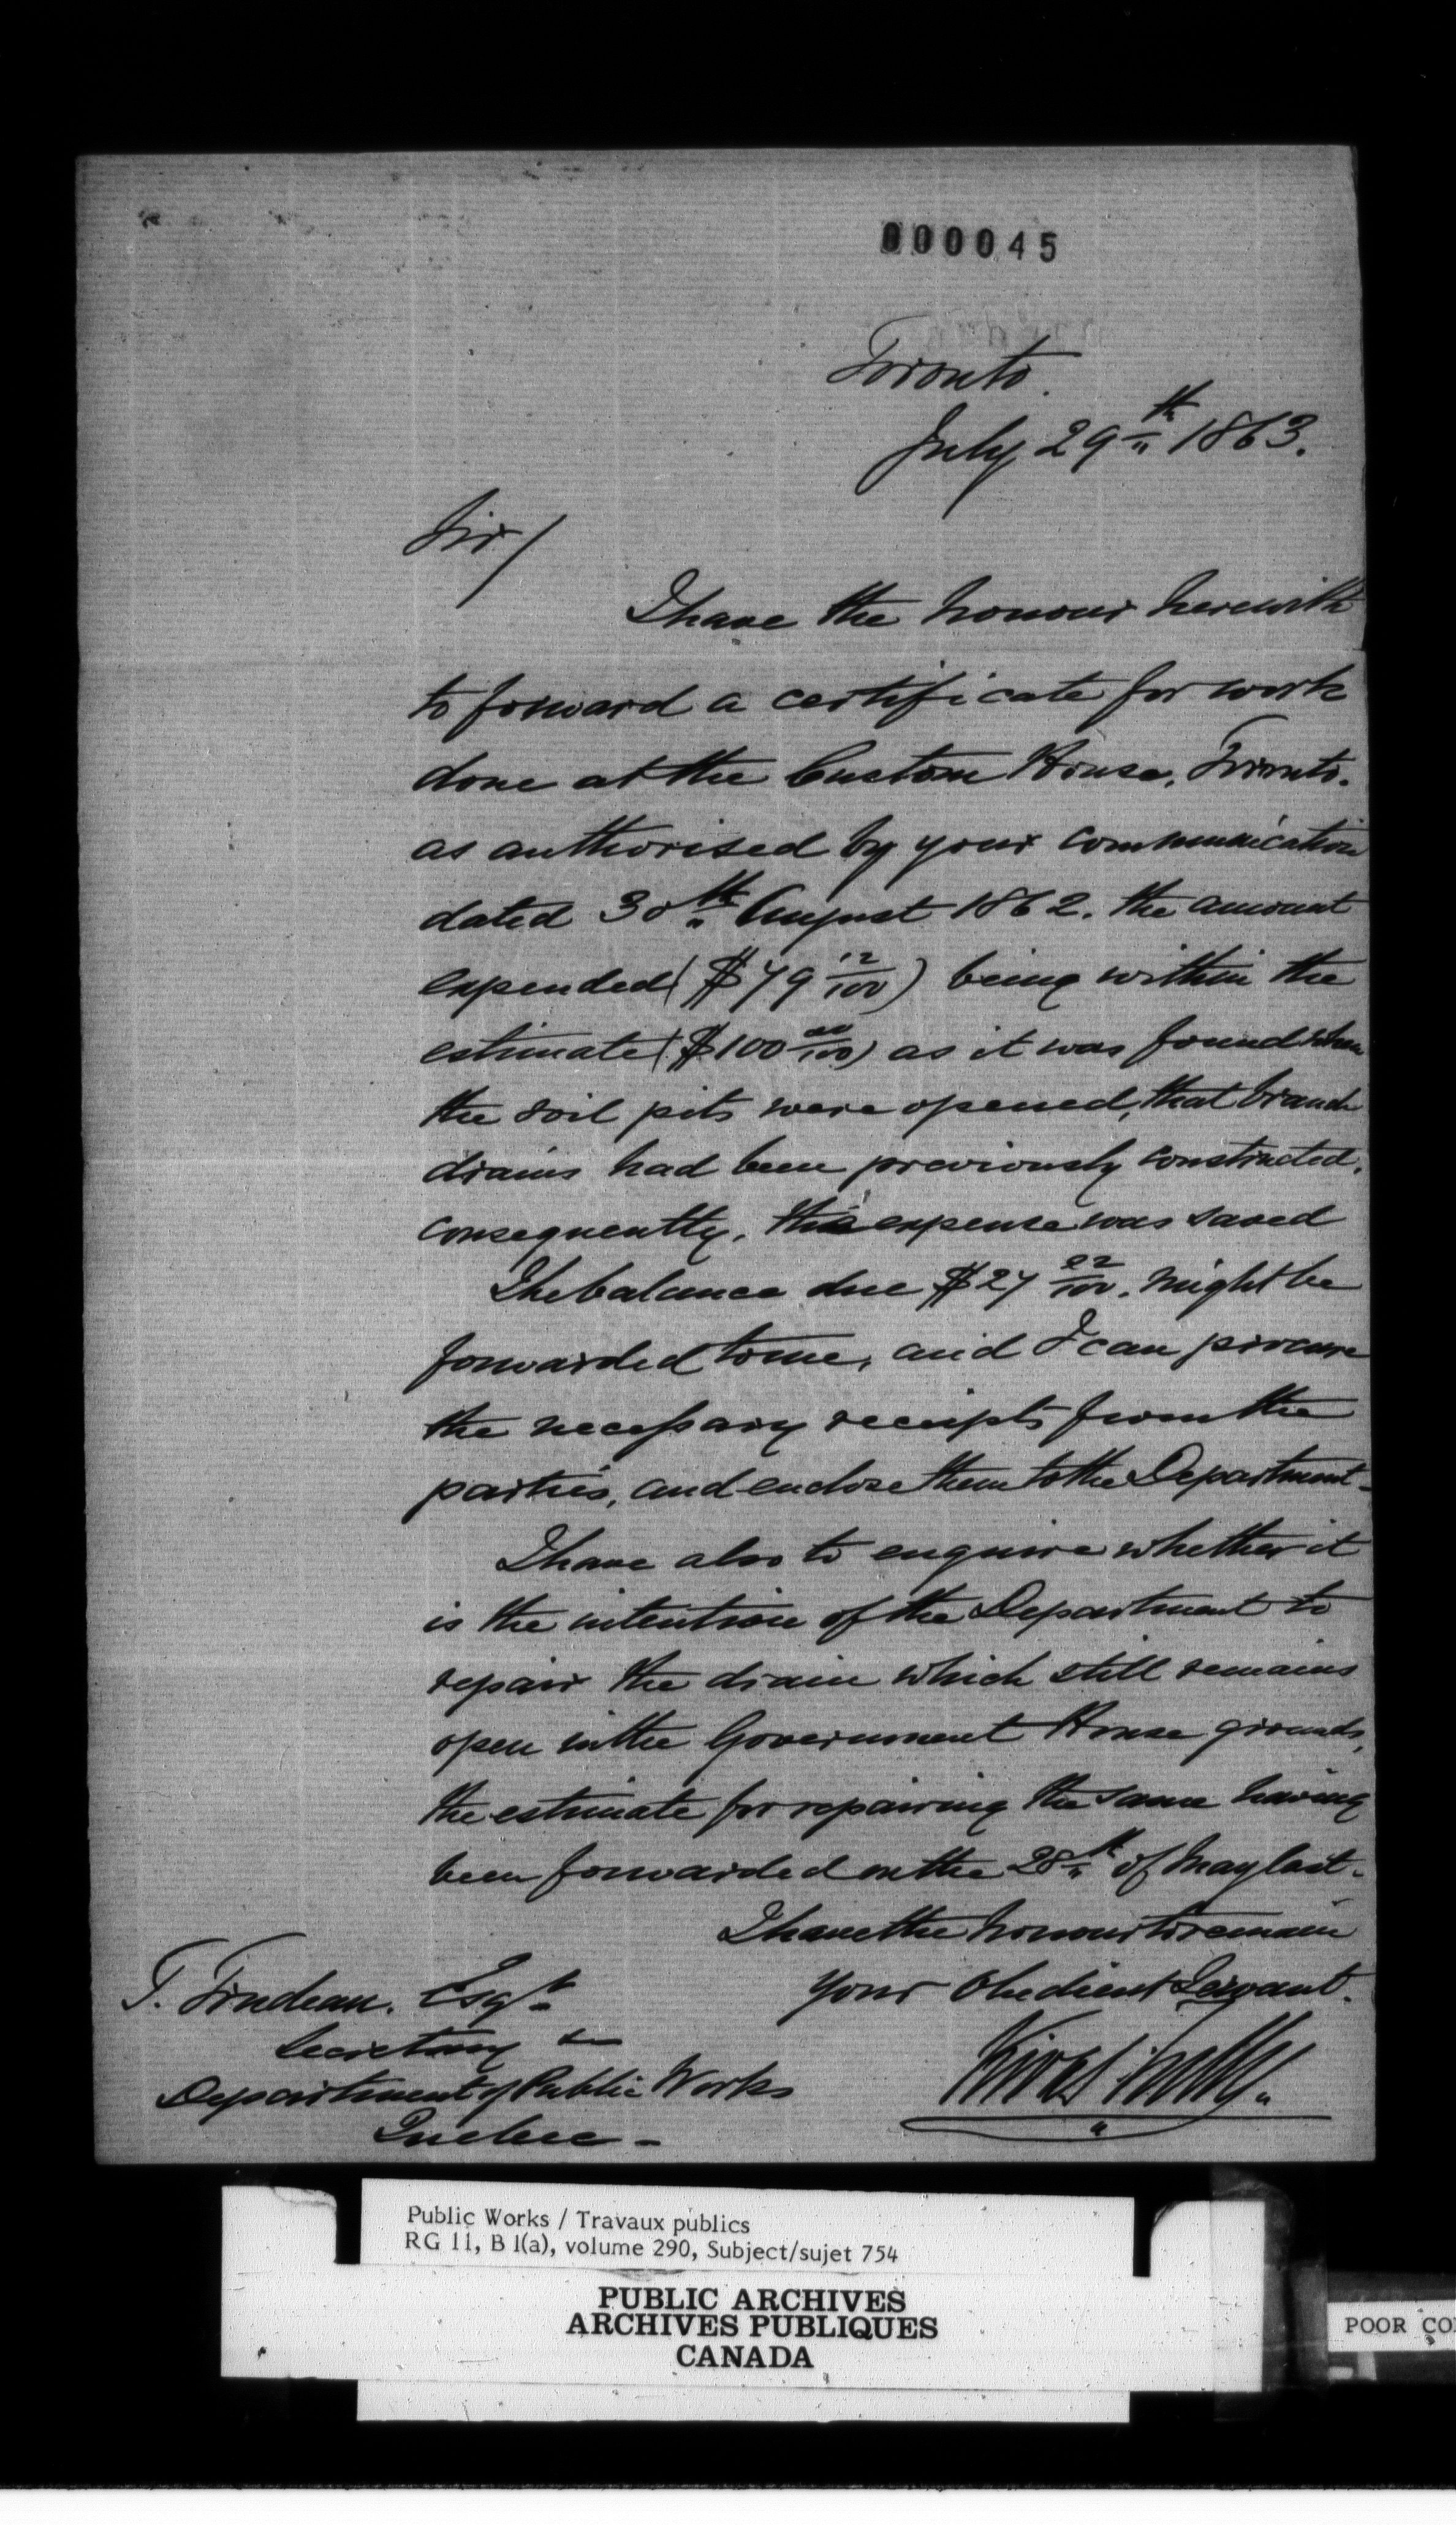 000045
Toronto.
July 29th 1863.
Sir/
I have the honour herewith
to forward a certificate for work
done at the Custom House, Toronto.
as authorised by your communication
dated 30th August 1862. the amount
expended ($79 12/100) being within the
estimate ($100 00/100) as it was found when
the soil pits were opened, that branch
drains had been previously constructed.
consequently, this expense was saved
The balance due $27 22/100. might be
forwarded to me, and I can procure
the necessary receipts from the
parties, and enclose them to the Department-
I have also to enquire whether it
is the intention of the Department to
repair the drain which still remains
open in the Government House grounds,
the estimate for repairing the same having
been forwarded on the 28th of May last-
I have the honour to remain
Your Obedient Servant.
T. Trudeau. Esqr
Secretary
Department of Public Works
Quebec -
Kivas Tully.
Public Works / Travaux publics
RG 11, B 1(a), volume 290, Subject/sujet 754
PUBLIC ARCHIVES
ARCHIVES PUBLIQUES
CANADA
POOR CO